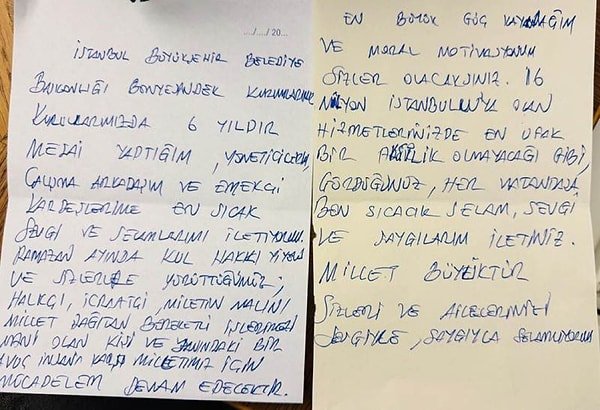 ..../..../ 20...
İSTANBUL BÜYÜKŞEHİR BELEDİYE
BAŞKANLIĞI BÜNYESİNDEK KURUMLARIMIZ
KURULLARIMIZDA 6 YILDIR
MESAİ YAPTIĞIM, YÖNETİCİLERİM,
ÇALIŞMA ARKADAŞIM VE EMEKÇİ
KARDEŞLERİME EN SICAK
SEVGİ VE SELAMLARIMI İLETİYORUM.
RAMAZAN AYINDA KUL HAKKI YİYEN
VE SİZLERLE YÜRÜTTÜĞÜMÜZ;
HALKÇI, İCRAATÇI, MİLLETİN MALINI
MİLLET DAĞITAN BEREKETLİ İŞLERİMİZİ
MANİ OLAN KİŞİ VE YANINDAKİ BİR
AVUÇ İNSANI KARŞI MİLLETİMİZ İÇİN
MÜCADELEM DEVAM EDECEKTİR.
EN BÜYÜK GÜÇ KAYNAĞIM
VE MORAL MOTİVASYONUM
SİZLER OLACAKSINIZ. 16
MİLYON İSTANBULLUYA OLAN
HİZMETLERİNİZDE EN UFAK
BİR OLMAYACAĞI GİBİ,
GÖRDÜĞÜNÜZ, HER VATANDAŞA
BEN SICACIK SELAM, SEVGİ
VE SAYGILARIM İLETİNİZ.
MİLLET BÜYÜKTÜR
SİZLERİ VE AİLELERİNİZİ
SEVGİYLE, SAYGIYLA SELAMLIYORUM